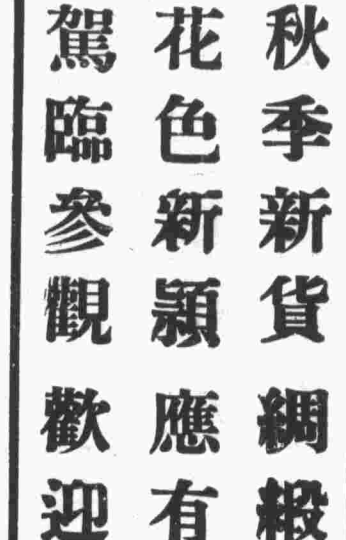 秋季新貨綢緞
花色新頴應有
駕臨參觀歡迎